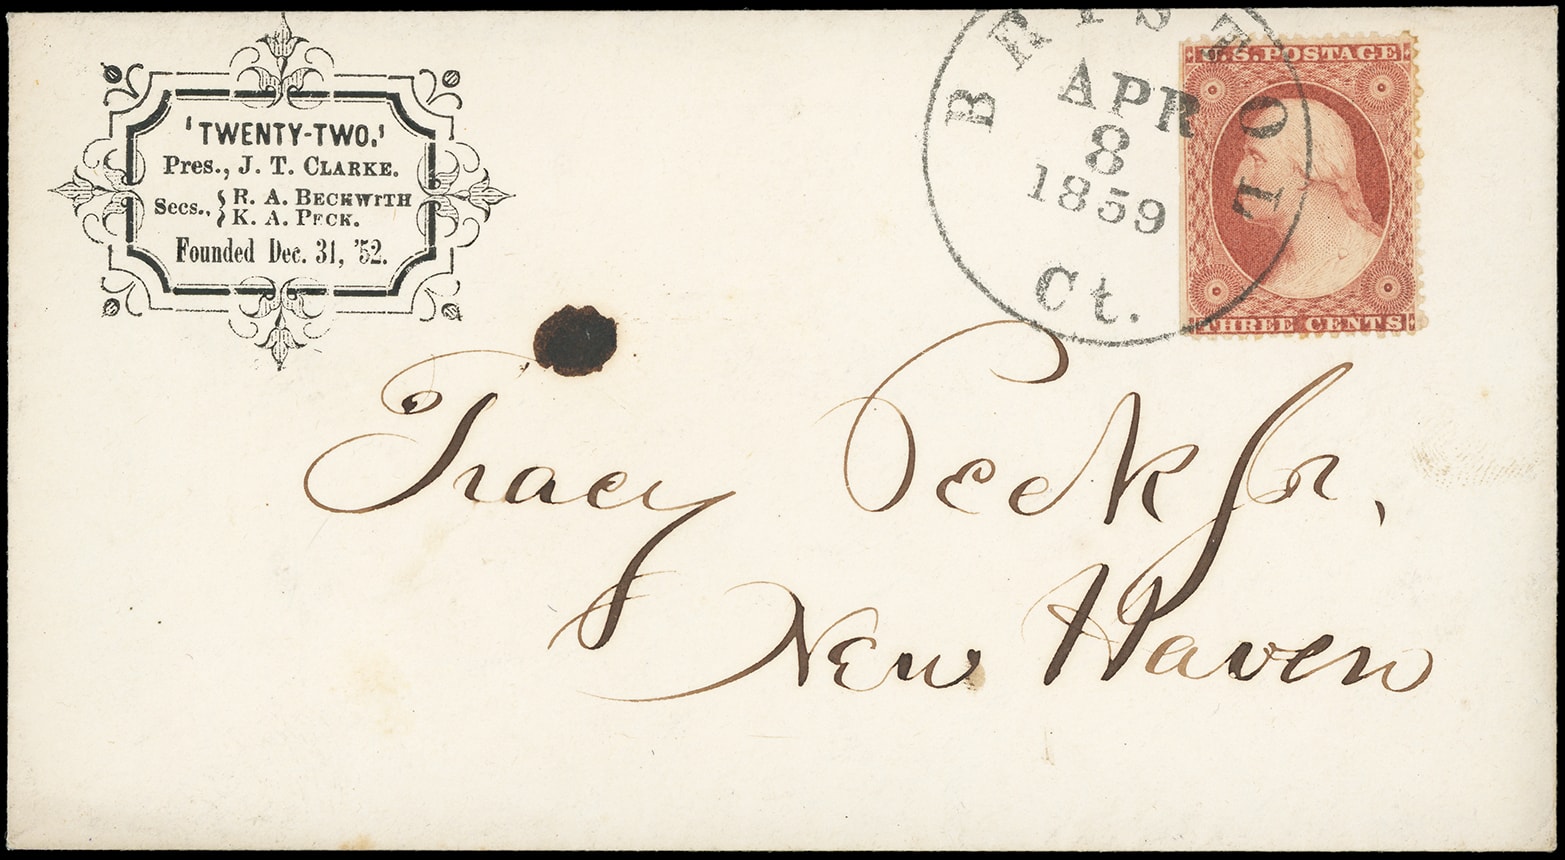 'TWENTY-TWO.'
Pres., J. T. CLARKE.
Secs., R. A. BECKWITH
K. A. PECK.
Founded Dec. 31, '52.
BRISTOL
APR
8
1859
Ct.
U.S. POSTAGE
THREE CENTS
Tracy Peck Jr,
New Haven